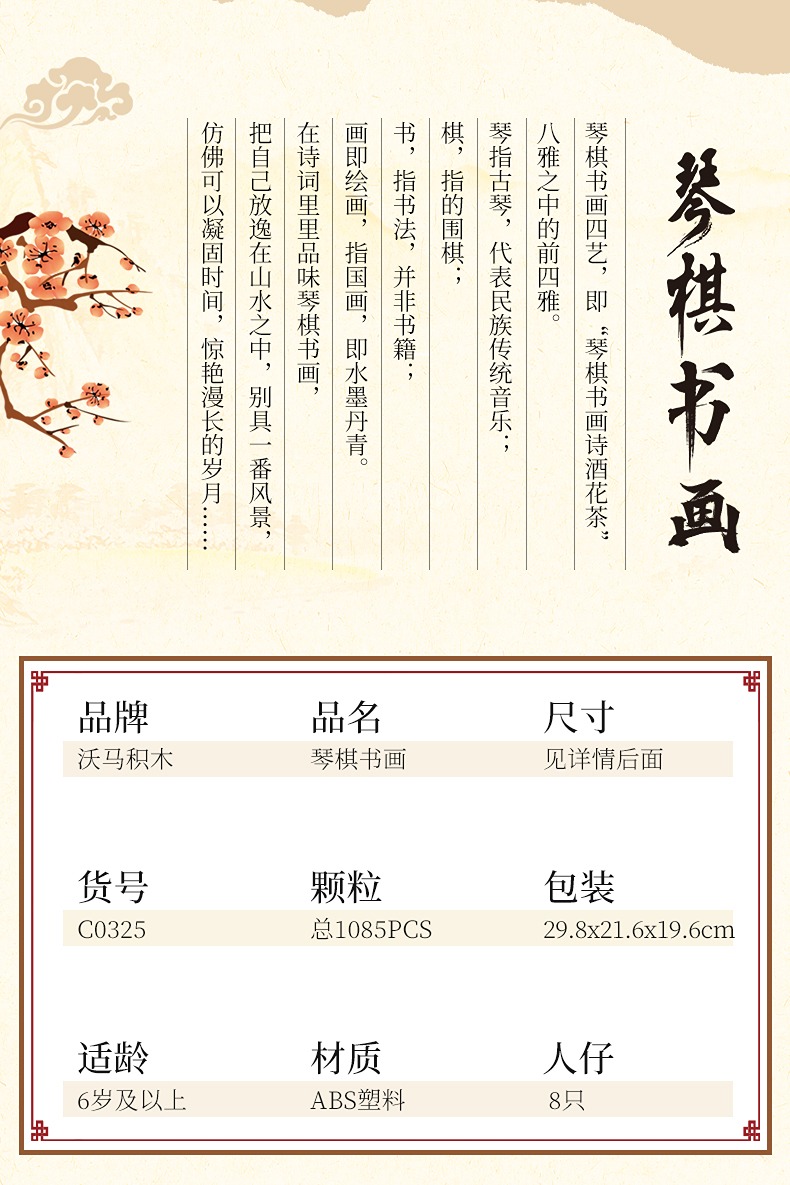 琴棋书画
琴棋书画四艺，即“琴棋书画诗酒花茶”
八雅之中的前四雅。
琴指古琴，代表民族传统音乐；
棋，指的围棋；
书，指书法，并非书籍；
画即绘画，指国画，即水墨丹青。
在诗词里里品味琴棋书画，
把自己放逸在山水之中，别具一番风景，
仿佛可以凝固时间，惊艳漫长的岁月……
品牌 品名 尺寸
沃马积木 琴棋书画 见详情后面
货号 颗粒 包装
C0325 总1085PCS 29.8x21.6x19.6cm
适龄 材质 人仔
6岁及以上 ABS塑料 8只